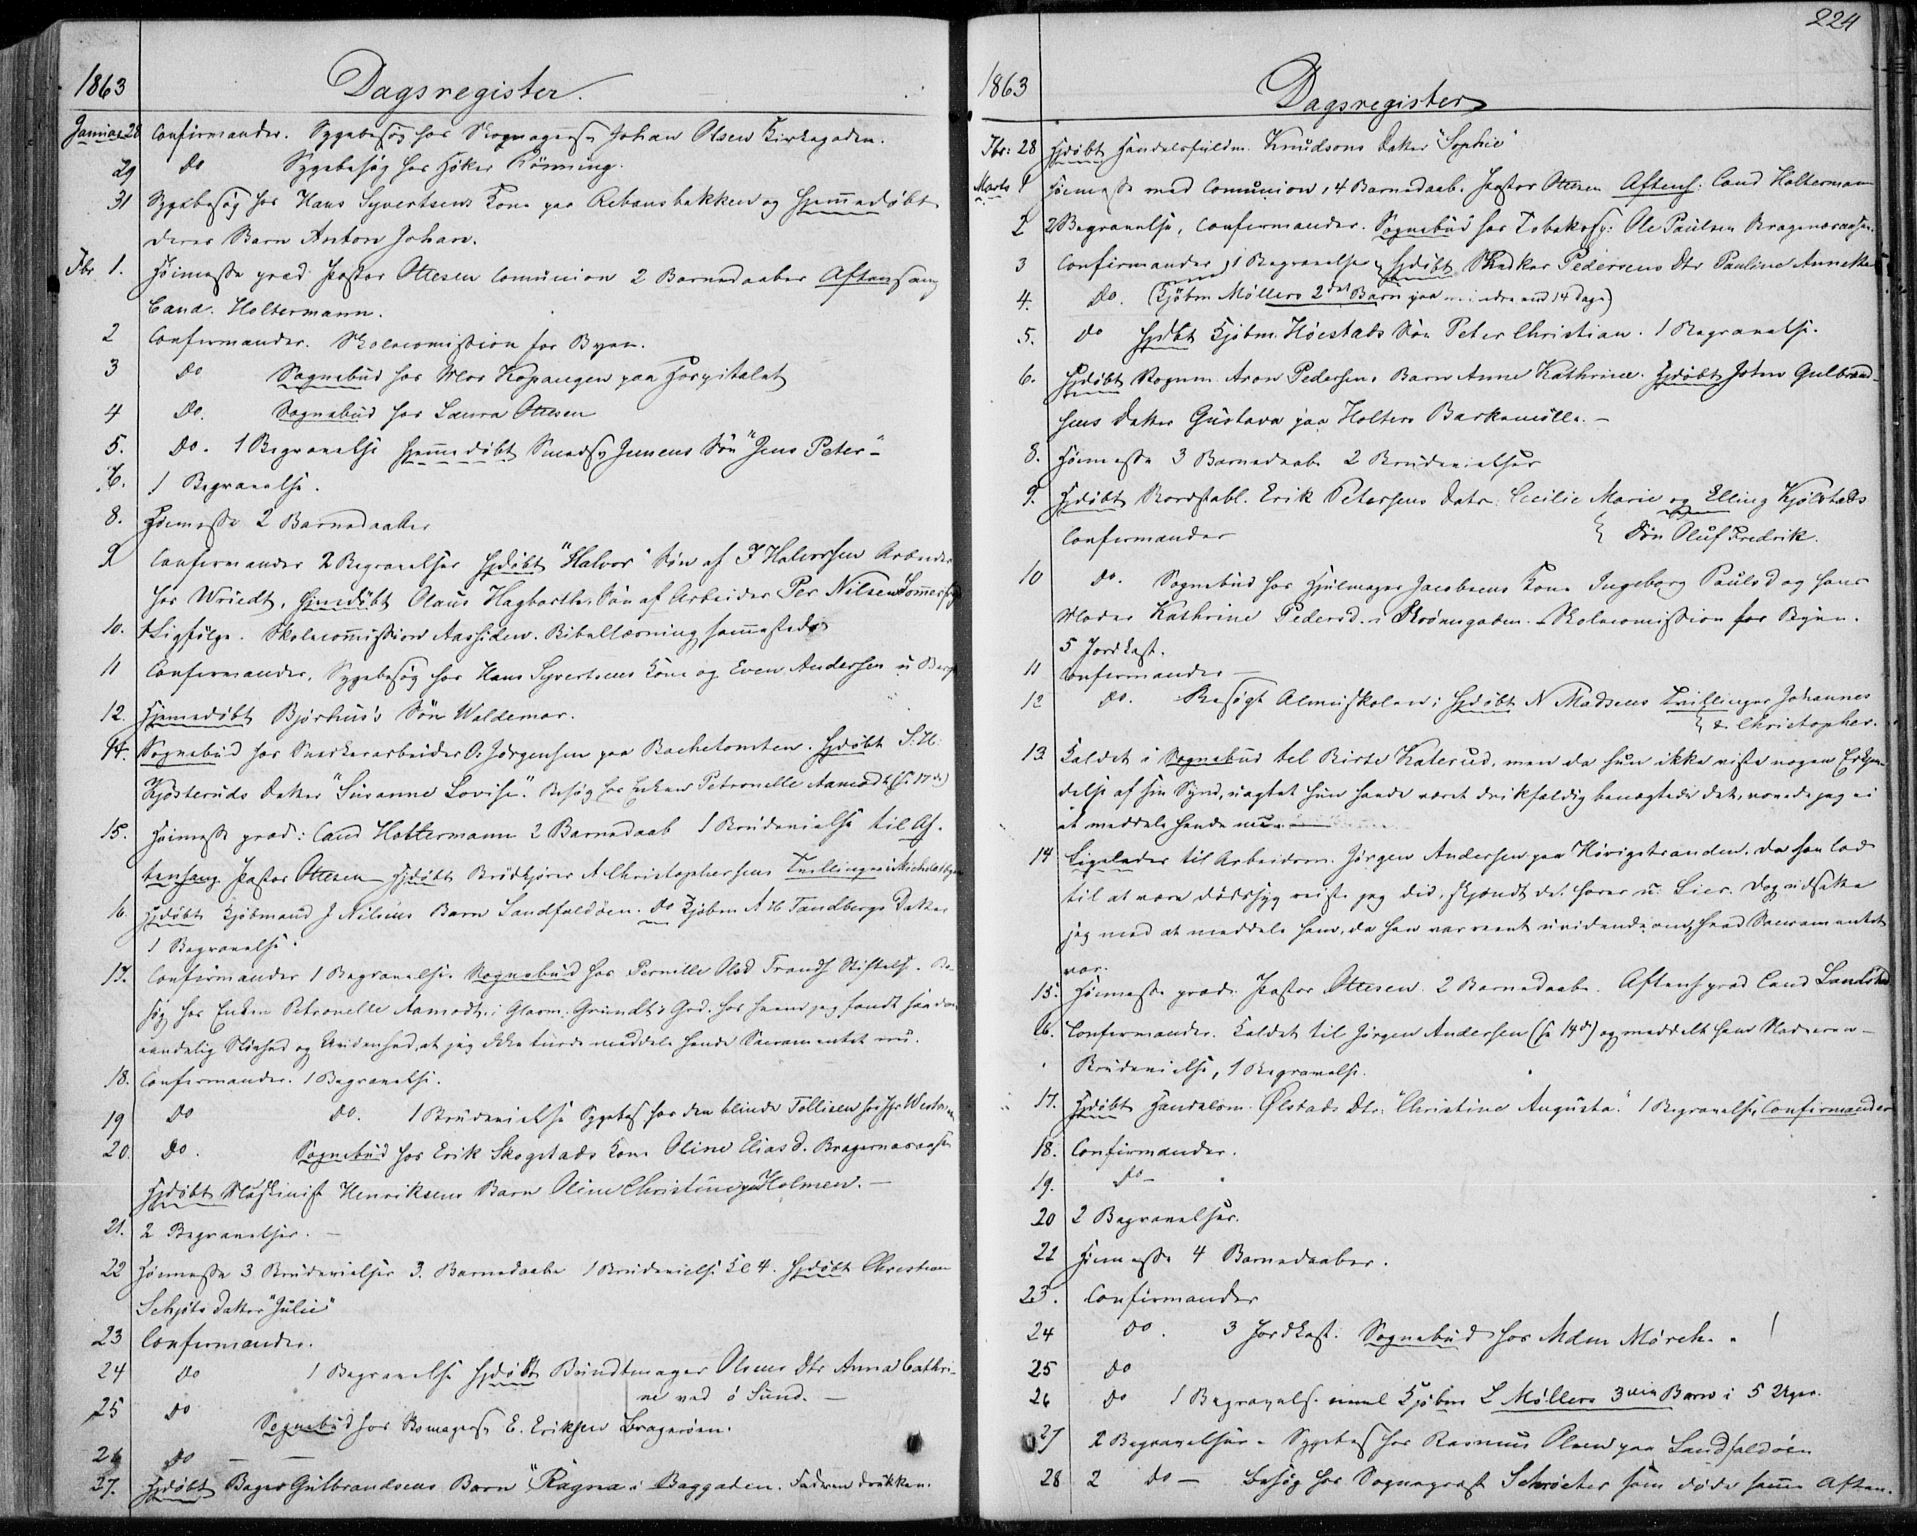 1863 Dagsregister.
Januar 28 Confirmander. Sygebesøg hos Skomagersv Johan Olsen Kirkegaden.
29 Do Sygebesøg hos Høker Rønning.
31 Sygebesøg hos Hans Syvertsens Kone paa Rebansbakken og Hjemmedøbt
deres Barn Anton Johan.
Fbr 1. Høimesse præd. Pastor Ottesen Comunion 2 Barnedaaber Aftensang
Cand. Holtermann.
2 Confirmander. Skolecomission for Byen.
3 Do Sognebud hos Mor Kopangen paa Hospitalet
4 Do. Sognebud hos Laura Ottesen
5. Do. 1 Begravelse Hjemmedøbt Smedsv Jensens Søn "Jens Peter"
6. 1 Begravelse.
8. Høimesse 2 Barnedaaber
9 Confirmander 2 Begravelser Hjdøbt "Halvor" Søn af J Halvorsen Arbeider
hos Wriedt, Hjmedøbt Olaus Hagbarth, Søn af Arbeider Per Nilsen
10. 1 Ligfølge. Skolecomission Aassiden. Bibellæsning sammesteds
11 Confirmander. Sygebesøg hos Hans Syvertsens Kone og Even Andersen
12. Hjemedøbt Bjørhus's Søn Waldemar.
14. Sognebud hos Snekkerarbeider O. Jørgensen paa Bachetomten. Hjdøbt S. H.
Kjøsteruds Datter "Susanne Lovise". Besøg hos Enken Petronelle Aamodt (se 17de)
15. Høimesse præd: Cand Holtermann 2 Barnedaab 1 Brudevielse til Af-
tensang Pastor Ottesen Hjdøbt Brødkjører A Christophersens Tvillinger
16. Hjdøbt Kjøbmand J Nilsens Barn Landfaldøen. Do Kjøbm A H Tandbergs Datter
1 Begravelse.
17. Confirmander 1 Begravelse. Sognebud hos Pernille Olsd Trands Stiftelse. Be-
søg hos Enken Petronelle Aamodt i Glarm. Grundts Grd. hos hvem jeg fandt saadan
aandelig Sløvhed og Uvidenhed, at jeg ikke turde meddele hende Sacramentet nu.
18. Confirmander. 1 Begravelse.
19 Do Do. 1 Brudevielse Sygebes hos den blinde Tollisen
20. Do. Sognebud hos Erik Skogstads Kone Oline Eliasd. Bragernesaasen
Hjdøbt Maskinist Henriksens Barn Oline Christine paa Holmen. —
21. 2 Begravelser. —
22 Høimesse 3 Brudevielser 3. Barnedaabe 1 Brudevielse Kl 4. Hjdøbt Christian
Schjøts Datter "Julie"
23 Confirmander.
24 Do 1 Begravelse Hjdøbt Bundtmager Olsens Dtr Anna Cathri-
ne ved ö Sund. —
25 Do Sognebud hos Skomagersv E. Eriksen Bragerøen.
26 Do — —
27. Hjdøbt Bager Gulbrandsens Barn "Ragna" i Baggaden. Faderen drukken.
224
1863 Dagsregister
Fbr: 28 Hjdøbt Handelsfuldm. Knudsons Datter "Sophie"
Marts 1 Høimesse med Comunion, 4 Barnedaab. Pastor Ottesen Aftens: Cand Holtermann
2 2 Begravelse, Confirmander. Sognebud hos Tobaksf: Ole Paulsen Bragernesaasen.
3 Confirmander, 1 Begravelse, Hjdøbt Snedker Pedersens Dtr Pauline Annette
4. Do. (Kjøbm Møllers 2det Barn paa mindre end 14 Dage)
5. Do Hjdbt Kjøbm. Høiestads Søn Peter Christian. 1 Begravelse.
6. Hjdøbt Rognm. Aron Pedersens Barn Anne Kathrine. Hjdøbt John Gulbrand-
sens Datter Gustava paa Holters Barkemølle. —
8. Høimesse 3 Barnedaabe 2 Brudevielser
9. Hjdøbt Erik Petersens Datr. Cecilie Marie og Elling Kjølstads
Confirmander Søn Oluf Fredrik.
10 Do. Sognebud hos Hjulmager Jacobsens Kone Ingeborg Paulsd og hans
Moder Kathrine Pedersd. i Strømsgaden. Skolecomission for Byen.
5 Jordkast.
11 Confirmander —
12 Do. Besøgt Almuskolen; Hjdøbt N Madsens Tvillinger Johannes
& Christopher.
13. Kaldet i Sognebud til Birte Katerud, men da hun ikke viste nogen Erkjen-
delse af sin Synd, uagtet hun havde været drikfældig benægtede det, vovede jeg ei
at meddele hende nu. —
14 Ligeledes til Arbeidsm. Jørgen Andersen paa Kivigstranden. Da han lod
til at være dødssyg reiste jeg did, skjøndt det hører u. Lier. Dog
jeg med at meddele ham, da han var reent uvidende om, hvad Sacramentet
var.
15. Høimesse præd. Pastor Ottesen. 2 Barnedaabe. Aftens præd Cand Landstad
16. Confirmander. Kaldet til Jørgen Andersen (se 14de) og meddelt ham Nadveren —
Brudevielse, 1 Begravelse.
17. Hjdøbt Handelsm. Ølstads Dtr: "Christine Augusta." 1 Begravelse, Confirmander
18. Confirmander.
19. Do —
20 2 Begravelser.
22 Høimesse 4 Barnedaaber.
23. Confirmander
24 Do. 3 Jordkast. Sognebud hos Mdm Mørch.
25 Do
26 Do 1 Begravelse nml Kjøbm L Møllers 3die Barn i 5 Uger.
27 2 Begravelser. Sygebes hos Rasmus Olsen paa Landfaldøen
28 2 Do — Besøg hos Sognepræst Schrøeter som døde samme Aften.